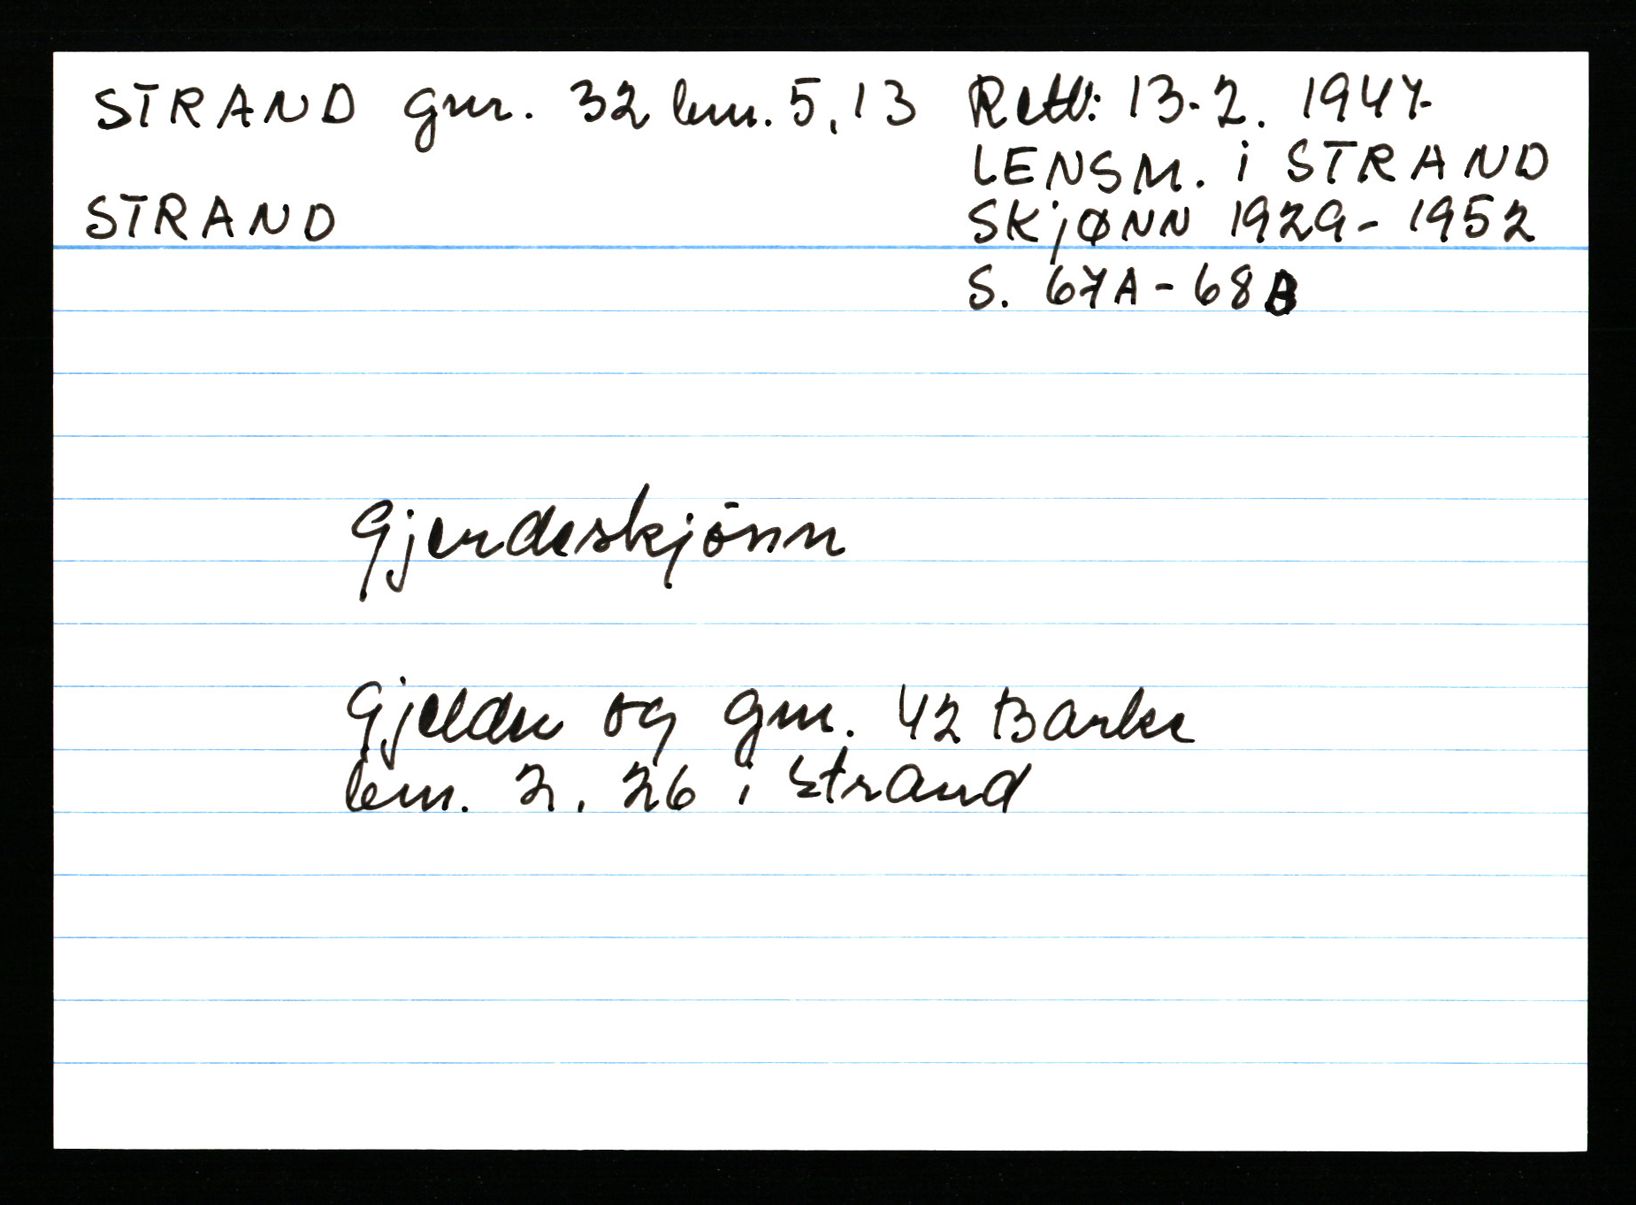 STRAND gnr. 32 bnr. 5, 13 Retts: 13.2. 1947
LENSM. i STRAND
STRAND SKJØNN 1929-1952
S. 67A-68B
Gjerdeskjönn
Gjelder og gnr. 42 Barke
bnr. 2, 26 i Strand